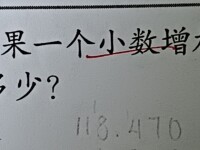 果一个小数增
少？
118.470